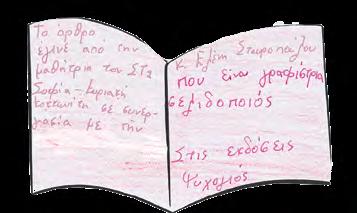 Το άρθρο
έγινε από την
μαθήτρια του ΣΤ2
Σοφία - Κυριακή
σε συνερ-
γασία με την
κ. Ελένη Σταυροπούλου
που είναι γραφίστρια
σελιδοποιός
Στις εκδόσεις
Ψυχογιός